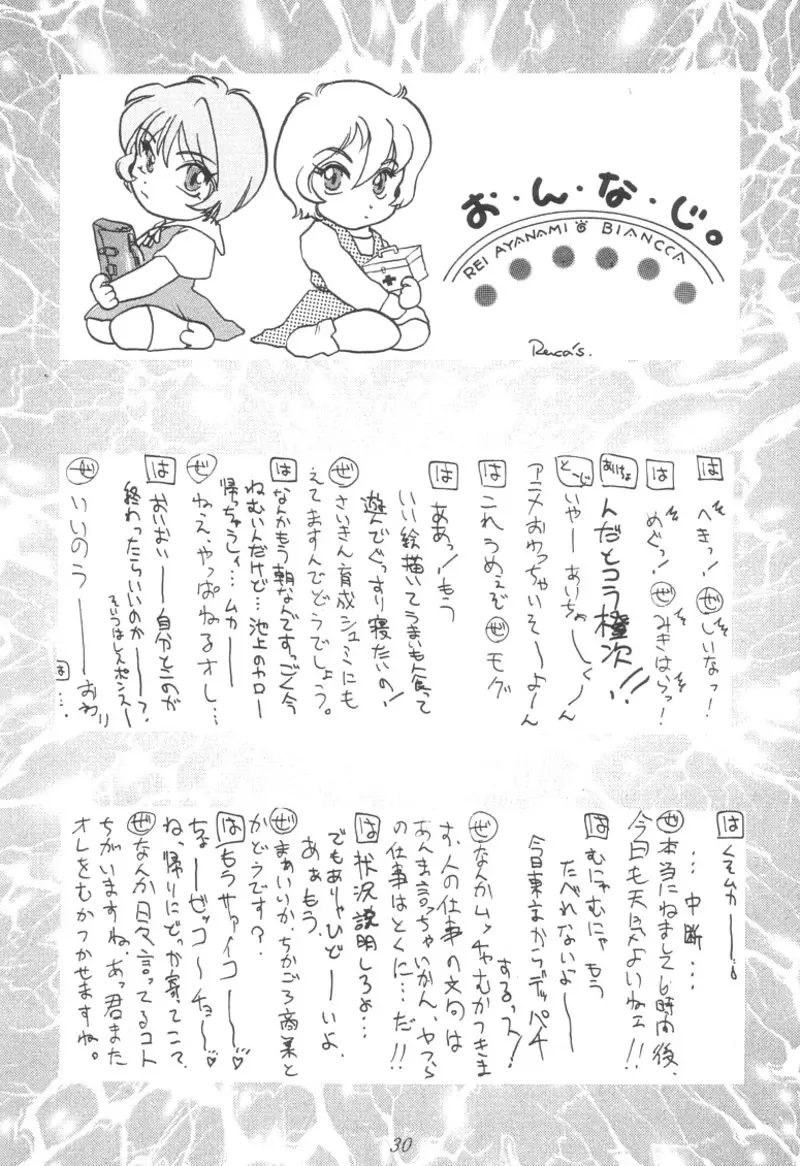 お・ん・な・じ。
REI AYANAMI BIANCCA
Reica's.
は べきっ！ ぜ しいなっ！
は めぐっ！ ぜ みきはらっ！
あいけょ んだとコラ橙次!!
とーじ いやーあいちゃーしくーん
アニメおわっちゃいそ〜よ〜ん
は これうめぇぞ ぜ モグ
は ああっ！もう
いい絵描いてうまいもん食って
遊んでぐっすり寝たいの！
ぜ さいきん育成シュミにも
えてますんでどうでしょう。
は なんかもう朝なんですっごく今
ねむいんだけど…池上のヤロー
帰ちゃうし…ムカー
ぜ ねえ、やっぱねるオレ…
は おいおいー自分とこのが
終わったらいいのかー？
そいつはレスポンスー
ぜ いいのうーーおわり
は …
は くそムカーー。
…中断…
ぜ 本当にねまして6時間後、
今日も天気よいねェ!!
は むにゃむにゃ もう
たべれないよー
今日東京からデッパチ
するっス！
ぜ なんかムッチャむかつきま
す、人の仕事の文句は
あんま言っちゃいかん、ヤツら
の仕事はとくに…だ!!
は 状況説明しろよ…
でもありゃひどーいよ、
あぁもう。
ぜ まぁいいか、ちかごろ商業と
かどうです？
は もうサァイコーー♡
ちょーゼッコーチョー♡
ね、帰りにどっか寄てこで
ぜ なんか日々言ってるコト
ちがいますね。あっ君また
オレをむかつかせますね。
30